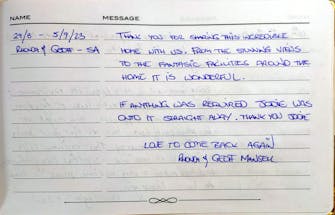 NAME MESSAGE
29/8 - 5/9/23 THANK YOU FOR SHARING THIS INCREDIBLE
RHONDA & GEOFF - SA HOME WITH US. FROM THE STUNNING VIEWS
TO THE FANTASTIC FACILITIES AROUND THE
HOME IT IS WONDERFUL.
IF ANYTHING WAS REQUIRED JODIE WAS
ONTO IT STRAIGHT AWAY. THANK YOU JODIE
LOVE TO COME BACK AGAIN
RHONDA & GEOFF MANSELL